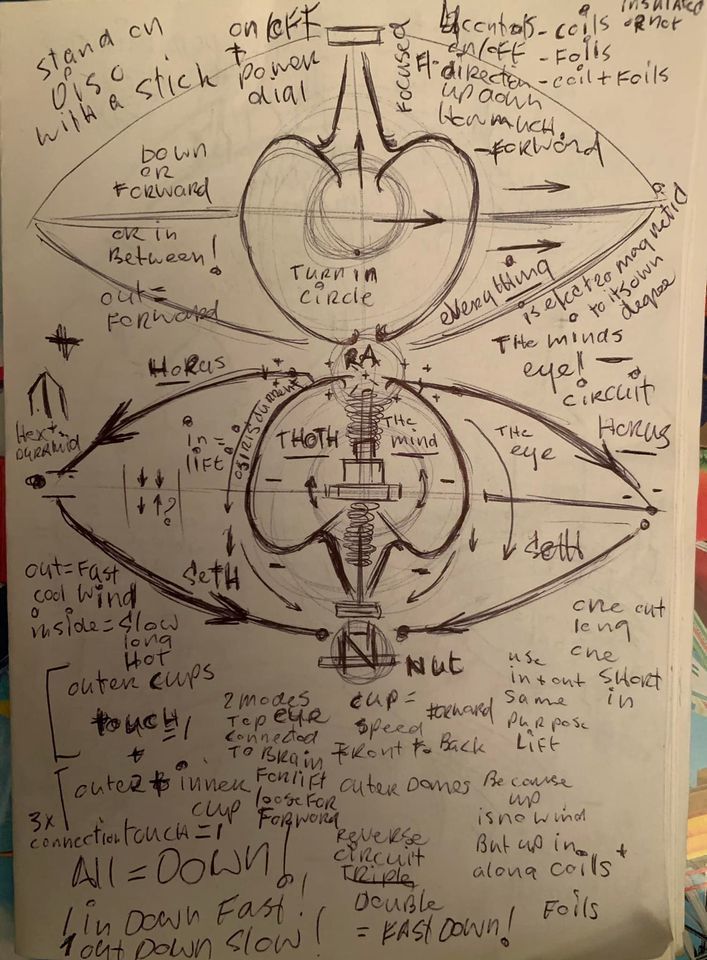 stand on
Disc
with a stick
on/off
+
power
dial
FOCUSED
controls - coils
insulated
or not
on/off - Foils
direction - coil + Foils
up down
How much
- FORWORD
DOWN
OR
FORWARD
OR in
Between!
out =
FORWARD
TURN in
CIRCLE
everything
is electro magnetic
to its own
degree
THE minds
eye!
circuit
RA
HORUS
HORUS
+
Hext
PyRamid
in =
lift
OSIRIS
THOTH
THE
mind
THE
eye
?
SETH
SETH
out = Fast
cool wind
inside = Slow
long
Hot
N
NUT
one out
long
one
SHORT
in
use
in + out
Same
purpose
LIFT
outer cups
touch = 1
+
outer + inner
cup
3x
connection touch = 1
2 modes
TOP CUP
connected
TO BRAIN
FOR lift
loose FOR
FORWARD
CUP =
Speed FORWARD
FRONT to Back
outer Domes
Because
up
is no wind
But up in
along coils +
Foils
All = DOWN!
Reverse
circuit
TRIPLE
DOUBLE
= FAST DOWN!
1 in DOWN FAST!
1 out DOWN SLOW!